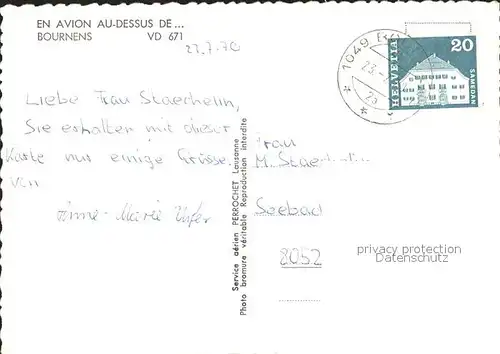 EN AVION AU-DESSUS DE ...
BOURNENS VD 671
23.7.70
Liebe Frau Staehelin,
Sie erhalten mit dieser
Karte nur einige Grüsse
von
Anne-Marie
Service aérien PERROCHET Lausanne
Photo bromure véritable Reproduction interdite
1049
23.
HELVETIA
20
SAMEDAN
Frau
M.
Seebad
8052
privacy protection
Datenschutz